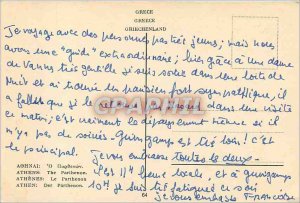 GRÈCE
GREECE
GRIECHENLAND
Je voyage avec des personnes pas très jeunes; mais nous
avons une "guide" extraordinaire; hier grâce à une dame
de Vannes très gentille je suis sortie dans une boîte de
Nuit et ai trouvé un parisien fort sympathique, il
a fallu que je
ce matin; c'est vraiment le dépaysement même si il
n'y a pas de soirées. Guingamp est très loin! C'est
le principal.
Je vous embrasse toutes les deux.
Il est 11H heure locale, et à Guingamp
10H je suis très fatiguée ce soir
Je vous embrasse FRANÇOISE
ΑΘΗΝΑΙ: Ὁ Παρθενών.
ATHENS: The Parthenon.
ATHÈNES: Le Parthénon.
ATHEN: Der Parthenon.
64